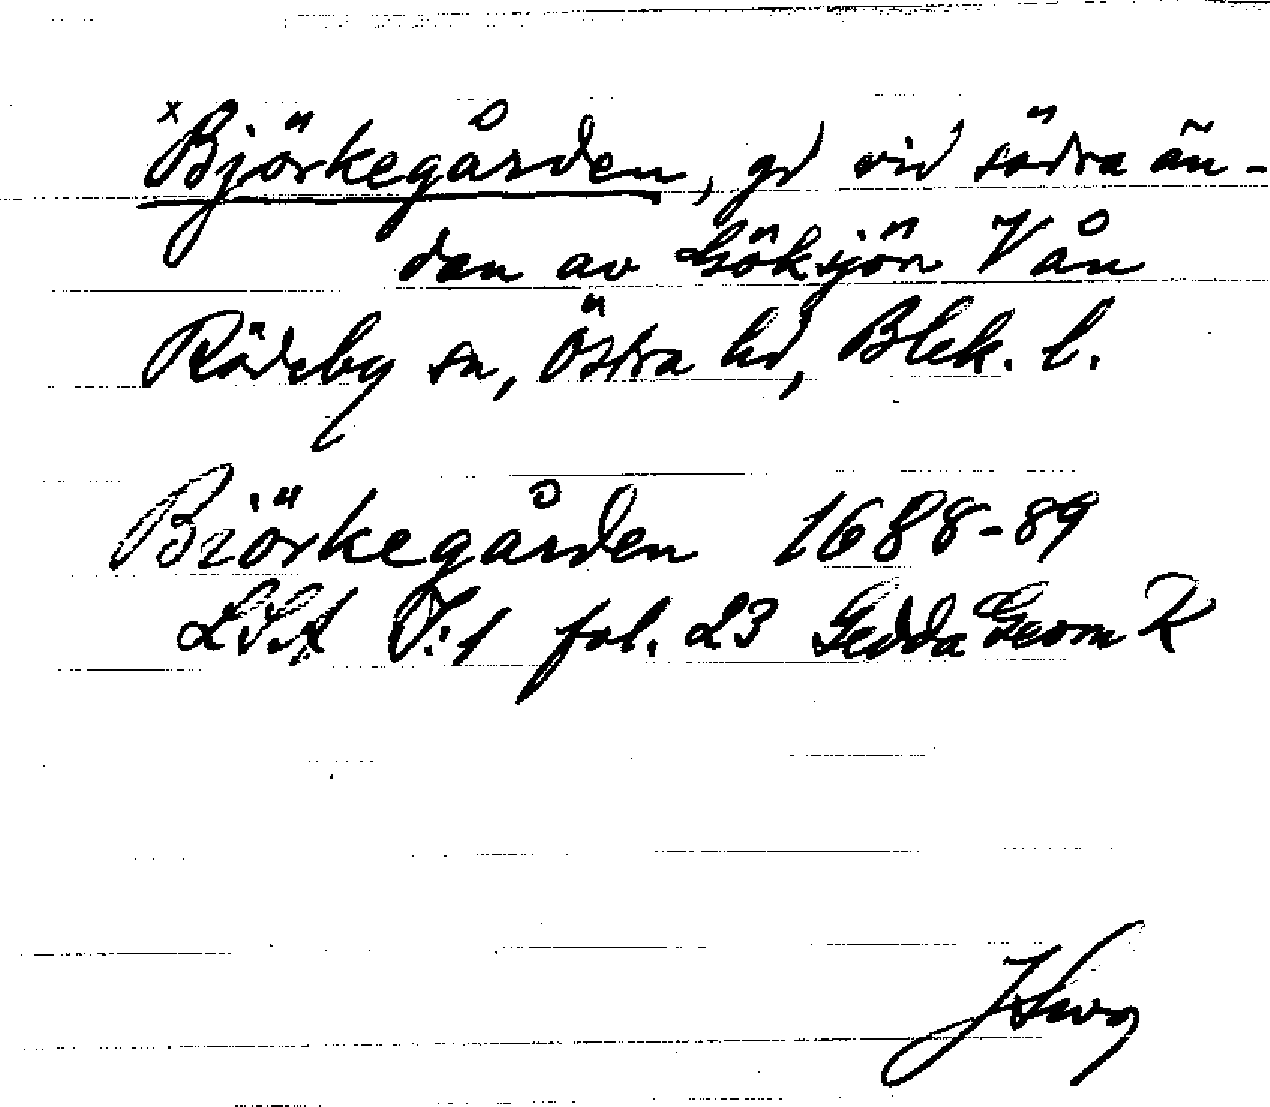 x Björkegården, gd vid södra än-
dan av Göksjön V ån
Rödeby sn, Östra hd, Blek. l.
Biörkegården 1688-89
LSA I:1 fol. 23 Gedda Geom K